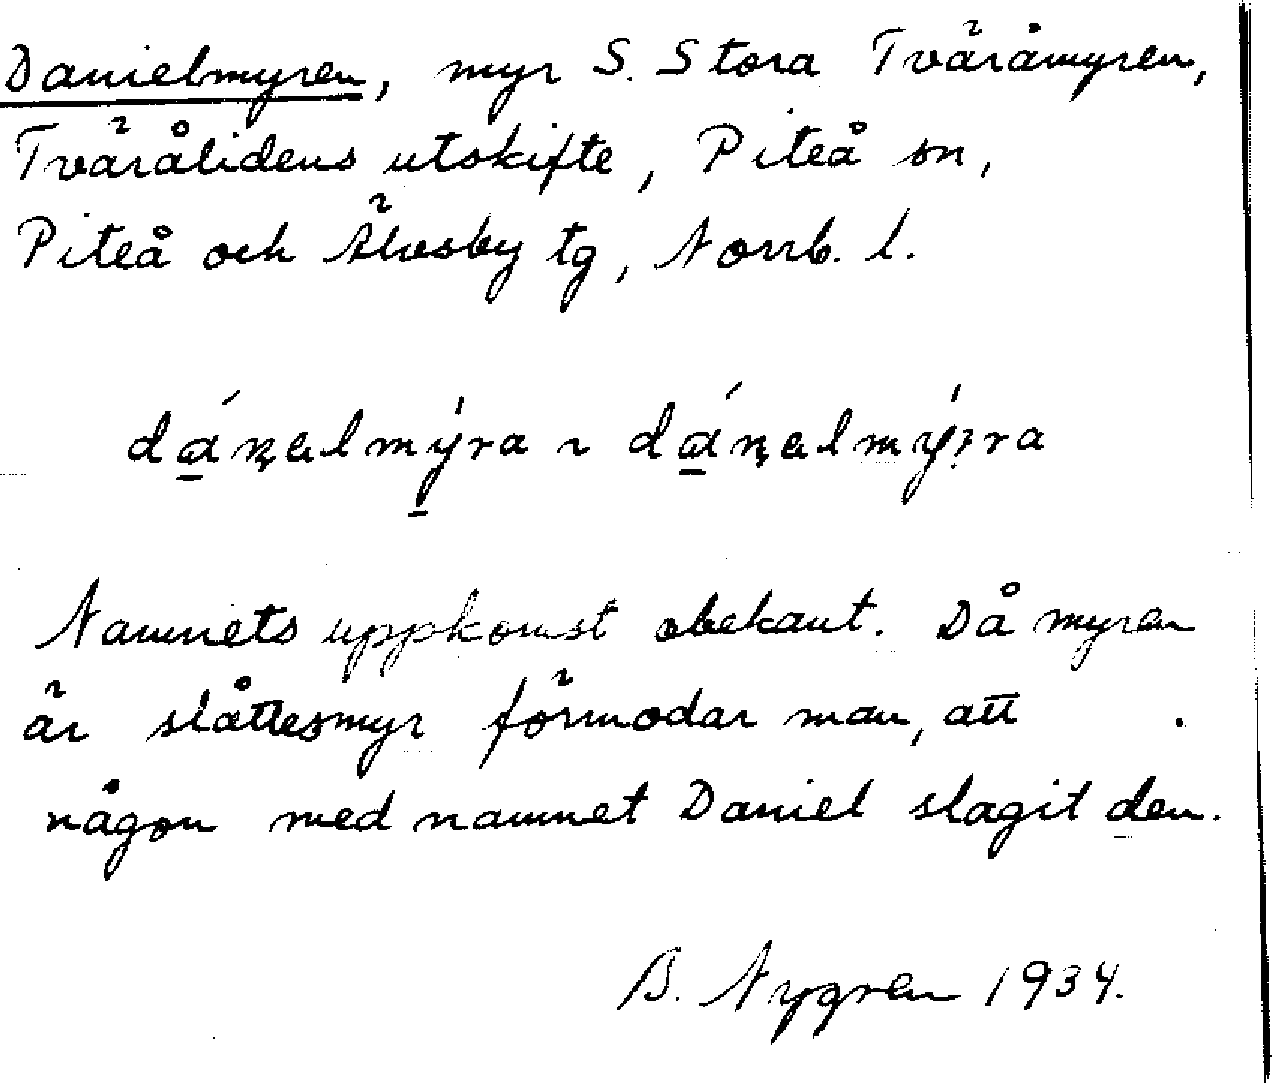 Danielmyren, myr S. Stora Tväråmyren,
Tvärålidens utskifte, Piteå sn,
Piteå och Älvsby tg, Norrb. l.
dánalmýra ~ dánalmý:ra
Namnets uppkomst obekant. Då myren
är slåttesmyr förmodar man, att
någon med namnet Daniel slagit den.
B. Nygren 1934.